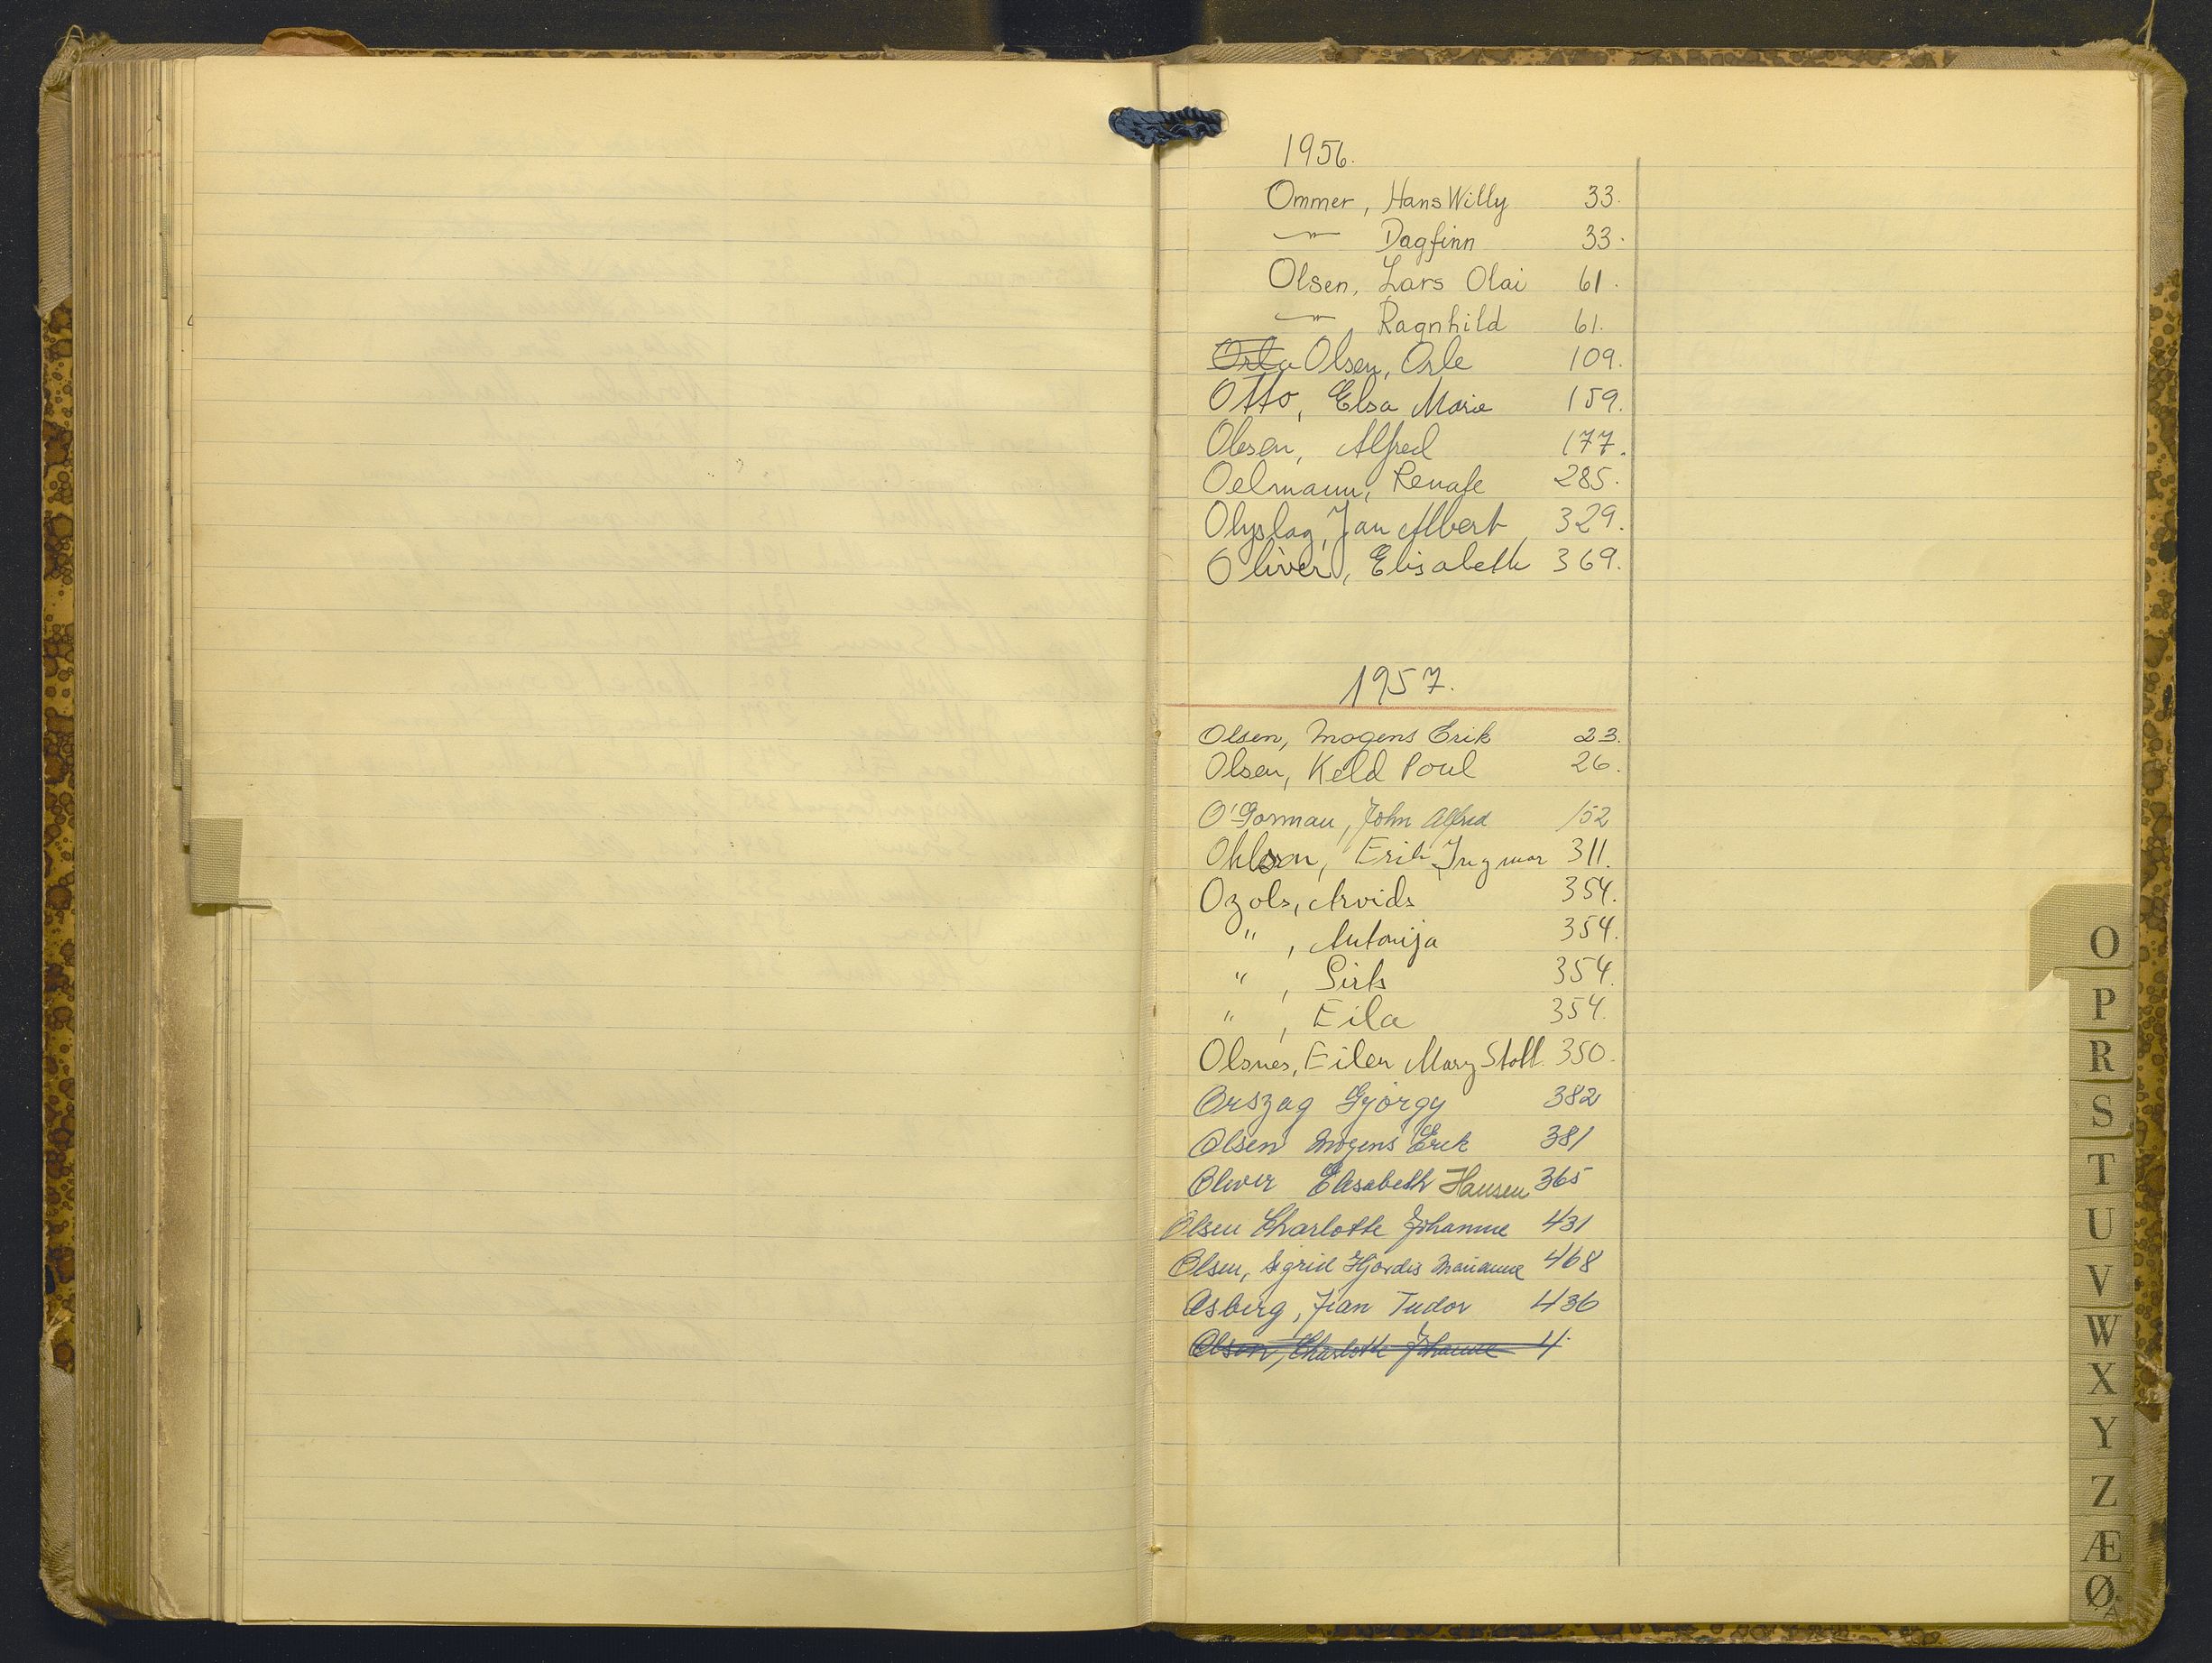 1956.
Ommer, Hans Willy 33.
—"— Dagfinn 33.
Olsen, Lars Olai 61.
—"— Ragnhild 61.
Orla Olsen, Orle 109.
Otto, Elsa Marie 159.
Olesen, Alfred 177.
Oelmann, Renate 285.
Olyslag, Jan Albert 329.
Oliver, Elisabeth 369.
1957.
Olsen, Mogens Erik 23.
Olsen, Keld Poul 26.
O'Gorman, John Alfred 152
Ohlson, Erik Ingmar 311.
Ozols, Arvids 354.
" , Antonija 354.
" , 354.
" , Eila 354.
Olsnes, Eilen Mary Stoll. 350.
Orszag György 382
Olsen Mogens Erik 381
Oliver Elisabeth Hansen 365
Olsen Charlotte Johanne 431
Olsen, Sigrid Hjørdis Marianne 468
Osberg, Jean Tudor 436
Olsen, Charlotte Johanne 4
O
P
R
S
T
U
V
W
X
Y
Z
Æ
Ø
Å